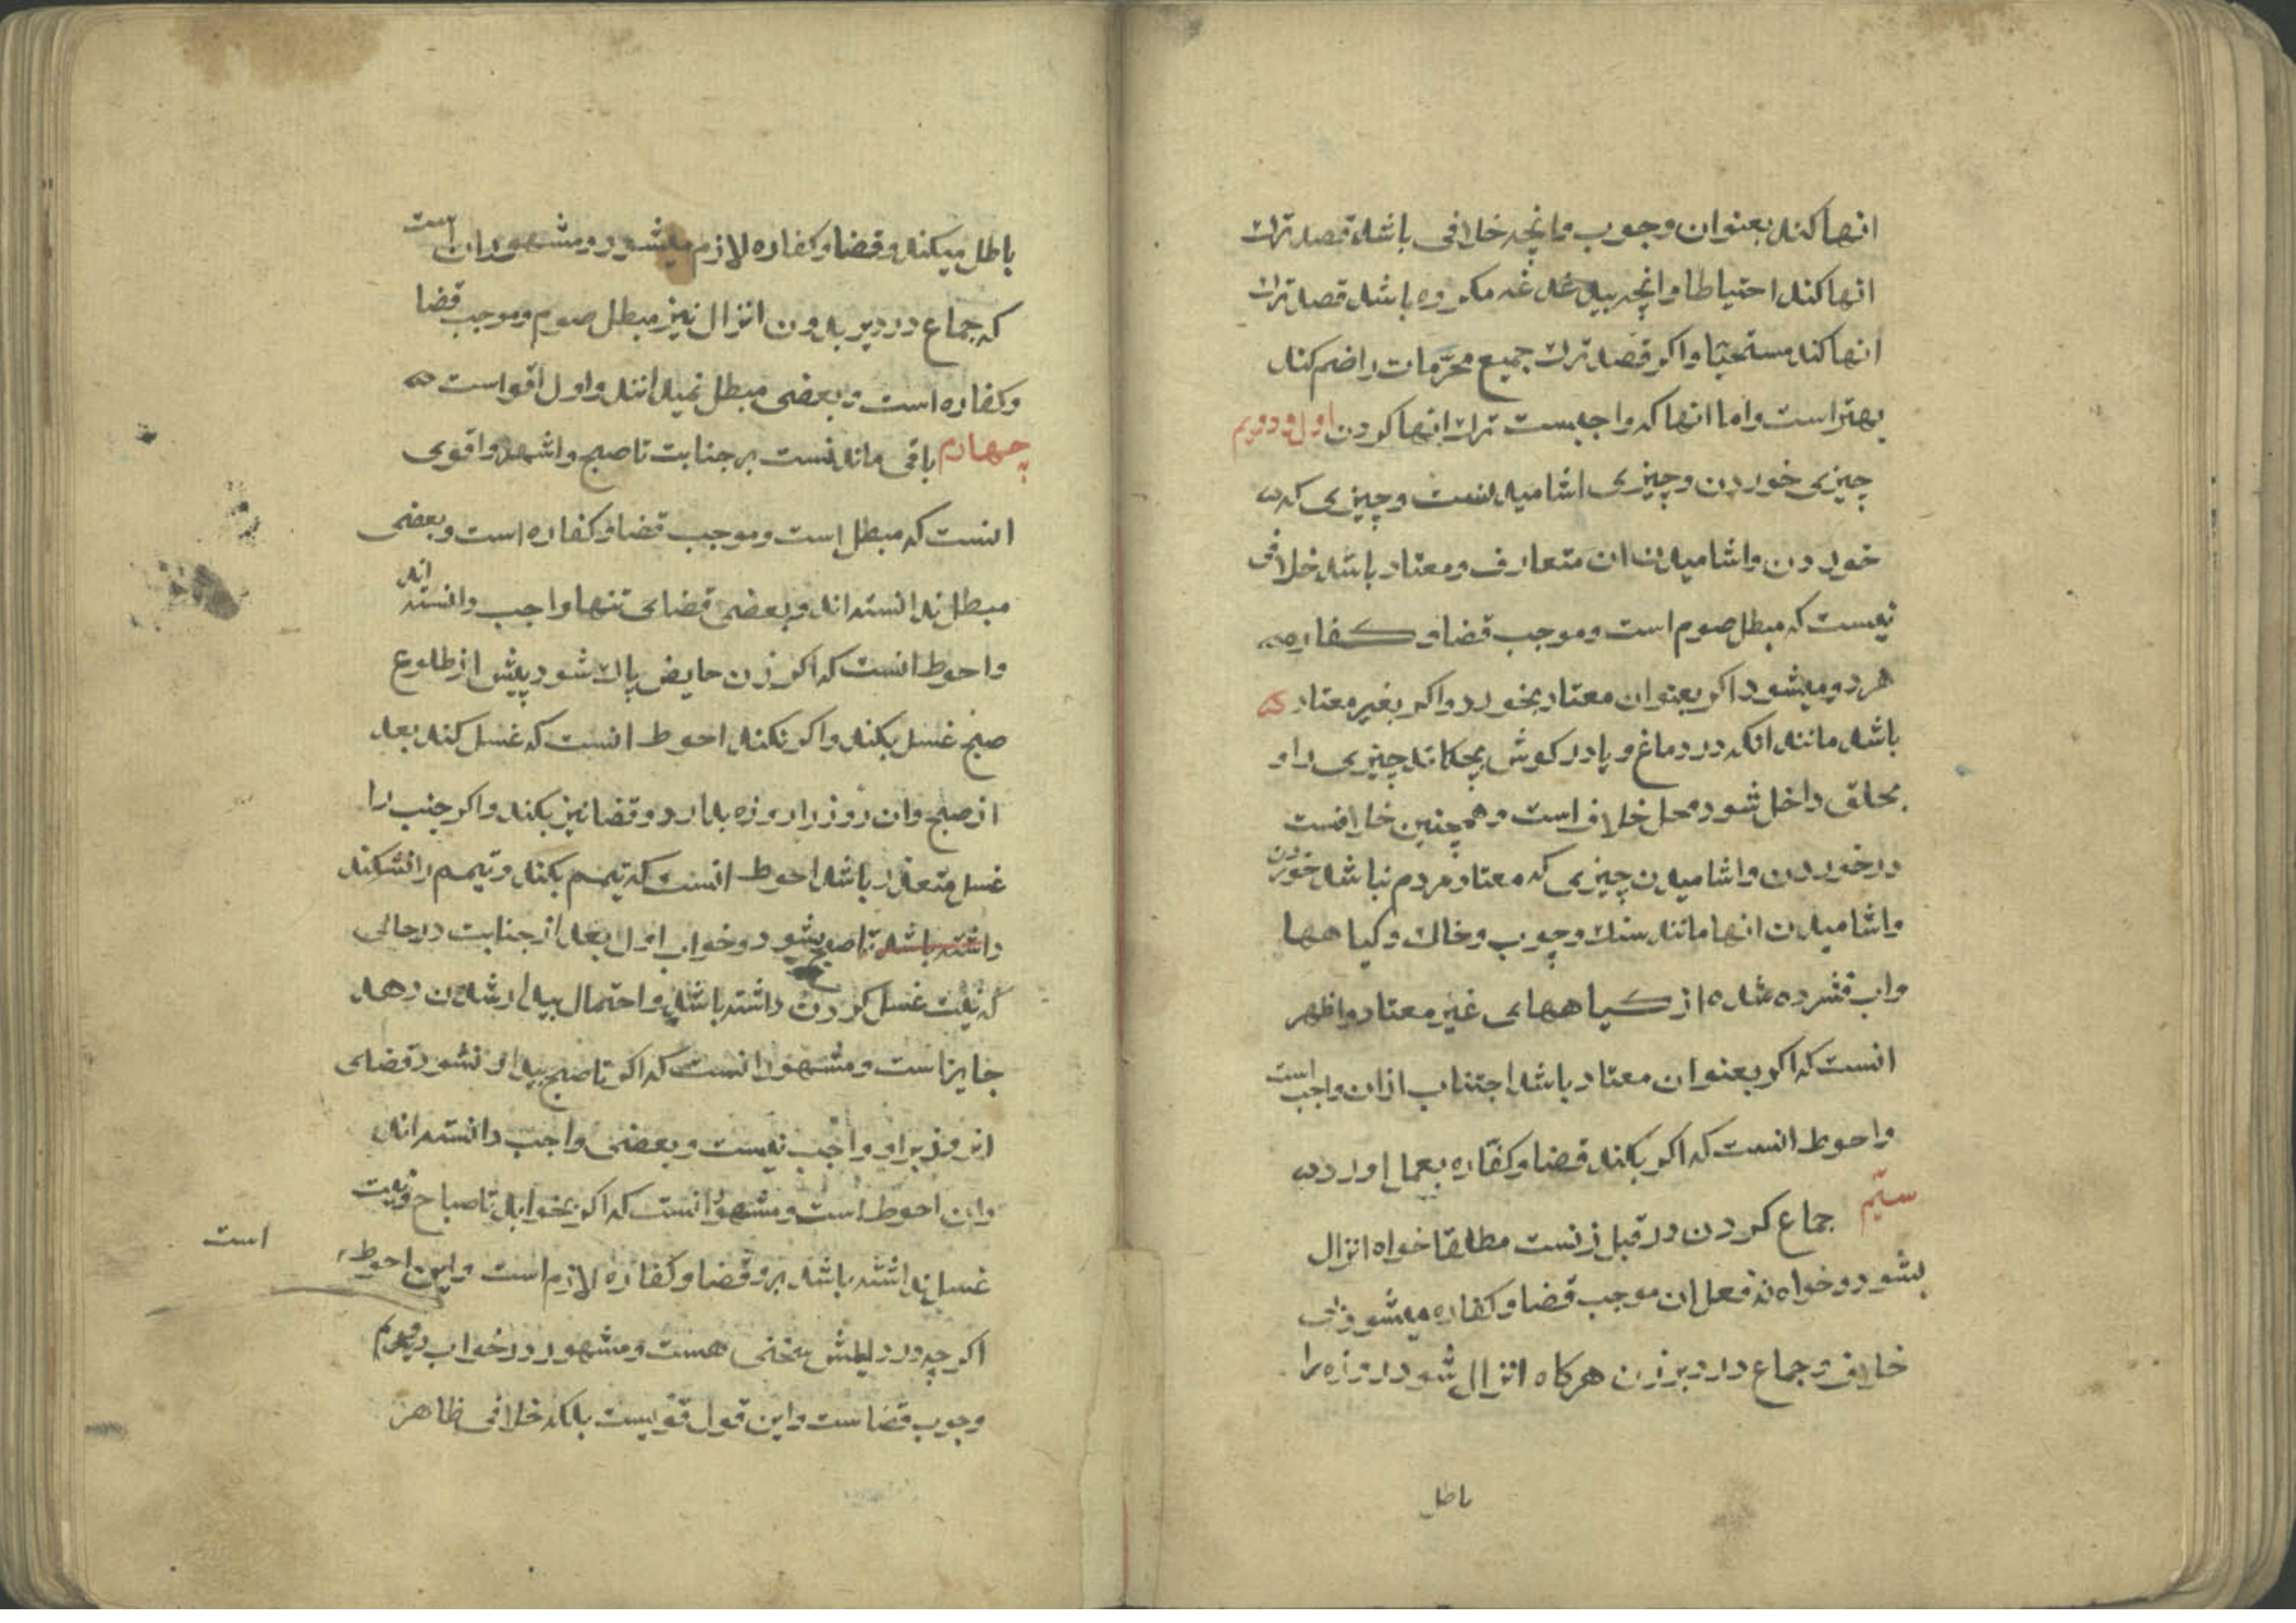 انها کند بعنوان وجوب وانچه خلافی باشد قصد ترك
انها کند احتیاطا وانچه بیدغدغه مکروه باشد قصد ترك
انها کند مستحبّا واکر قصد ترك جمیع محرّمات را ضم کند
بهتر است واما انها که واجبست ترك انها کردن اول ودویم
چیزی خوردن وچیزی اشامیدنست وچیزی که
خوردن واشامیدن ان متعارف ومعتاد باشد خلافی
نیست که مبطل صوم است وموجب قضا وکفاره
هردو میشود اکر بعنوان معتاد بخورد واکر بغیر معتاد
باشد مانند انکه در دماغ ویا در کوش بچکاند چیزی را و
بحلق داخل شود محل خلاف است وهمچنین خلافست
در خوردن واشامیدن چیزی که معتاد مردم نباشد خوردن
واشامیدن انها مانند سنك وچوب وخاك وکیاهها
واب فشرده شده از کیاههای غیر معتاد واظهر
انست که اکر بعنوان معتاد باشد اجتناب ازان واجب است
واحوط انست که اکر بکند قضا وکفّاره بعمل اورد
سیّم جماع کردن در قبل زنست مطلقا خواه انزال
بشود وخواه نه فعل ان موجب قضا وکفاره میشود بی
خلاف وجماع در دبر زن هرکاه انزال شود روزه را
باطل
باطل میکند وقضا وکفاره لازم میشود ومشهور ان است
که جماع در دبر بدون انزال نیز مبطل صوم وموجب قضا
وکفاره است وبعضی مبطل نمیدانند واول اقوا است
چهارم باقی ماندنست بر جنابت تا صبح واشهر واقوی
انست که مبطل است وموجب قضا وکفاره است وبعضی
مبطل ندانسته اند وبعضی قضای تنها واجب دانسته اند
واحوط انست که اکر زن حایض پاك شود پیش از طلوع
صبح غسل بکند واکر نکند احوط انست که غسل کند بعد
از صبح وان روز را روزه بدارد وقضا نیز بکند واکر جنب را
غسل متعذر باشد احوط انست که تیمم بکند وتیمم را نشکند
داشته باشد تا صبح بشود وخواب اول بعد از جنابت در حالی
که نیّت غسل کردن داشته باشد واحتمال بیدار شدن دهد
جایز است ومشهور انست که اکر تا صبح بیدار نشود قضای
انروز براو واجب نیست وبعضی واجب دانسته اند
واین احوط است ومشهور انست که اکر بخوابد تا صباح ونیت
غسل نداشته باشد برو قضا وکفاره لازم است واین احوط
است
اکرچه در دلیلش سخنی هست ومشهور در خواب دویم
وجوب قضاست واین قول قویست بلکه خلافی ظاهر